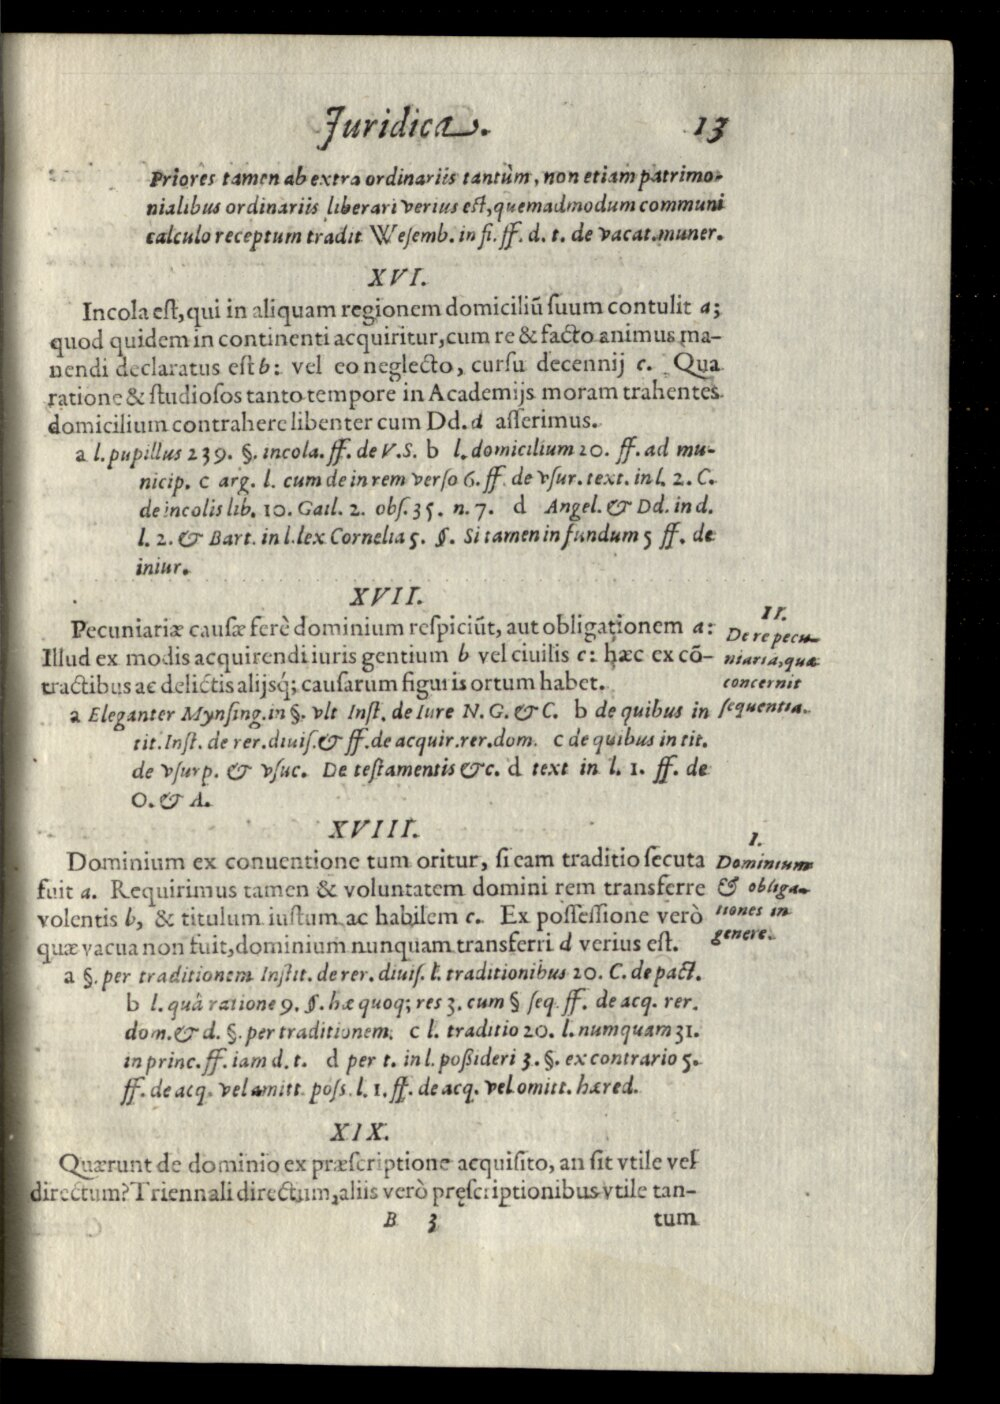 Juridica. 13
Priores tamen ab extra ordinariis tantùm, non etiam patrimo-
nialibus ordinariis liberari verius est, quemadmodum communi
calculo receptum tradit Wesemb. in fi. ff. d. t. de vacat. muner.
XVI.
Incola est, qui in aliquam regionem domiciliũ suum contulit a;
quod quidem in continenti acquiritur, cum re & facto animus ma-
nendi declaratus est b: vel eo neglecto, cursu decennij c. Qua
ratione & studiosos tanto tempore in Academijs moram trahentes
domicilium contrahere libenter cum Dd. d asserimus.
a l. pupillus 239. §. incola. ff. de V. S. b l. domicilium 20. ff. ad mu-
nicip. c arg. l. cum de in rem verso 6. ff. de vsur. text. in l. 2. C.
de incolis lib. 10. Gail. 2. obs. 35. n. 7. d Angel. & Dd. in d.
l. 2. & Bart. in l. lex Cornelia 5. §. Si tamen in fundum 5 ff. de
iniur.
XVII.
Pecuniariæ causæ ferè dominium respiciũt, aut obligationem a:
Illud ex modis acquirendi iuris gentium b vel ciuilis c: hæc ex cõ-
tractibus ac delictis alijsq́; causarum figuris ortum habet.
a Eleganter Mynsing. in §. vlt Inst. de Iure N. G. & C. b de quibus in
tit. Inst. de rer. diuis. & ff. de acquir. rer. dom. c de quibus in tit.
de vsurp. & vsuc. De testamentis &c. d text in l. 1. ff. de
O. & A.
II.
De re pecu-
niaria, quæ
concernit
sequentia.
XVIII.
Dominium ex conuentione tum oritur, si eam traditio secuta
fuit a. Requirimus tamen & voluntatem domini rem transferre
volentis b, & titulum iustum ac habilem c. Ex possessione verò
quæ vacua non fuit, dominium nunquam transferri d verius est.
a §. per traditionem Instit. de rer. diuis. l. traditionibus 20. C. de pact.
b l. quâ ratione 9. §. hæ quoq; res 3. cum § seq. ff. de acq. rer.
dom. & d. §. per traditionem. c l. traditio 20. l. numquam 31.
in princ. ff. iam d. t. d per t. in l. possideri 3. §. ex contrario 5.
ff. de acq. vel amitt. poss. l. 1. ff. de acq. vel omitt. hæred.
I.
Dominium
& obliga-
tiones in
genere.
XIX.
Quærunt de dominio ex præscriptione acquisito, an sit vtile vel
directum? Triennali directum, aliis verò pręscriptionibus vtile tan-
B 3 tum